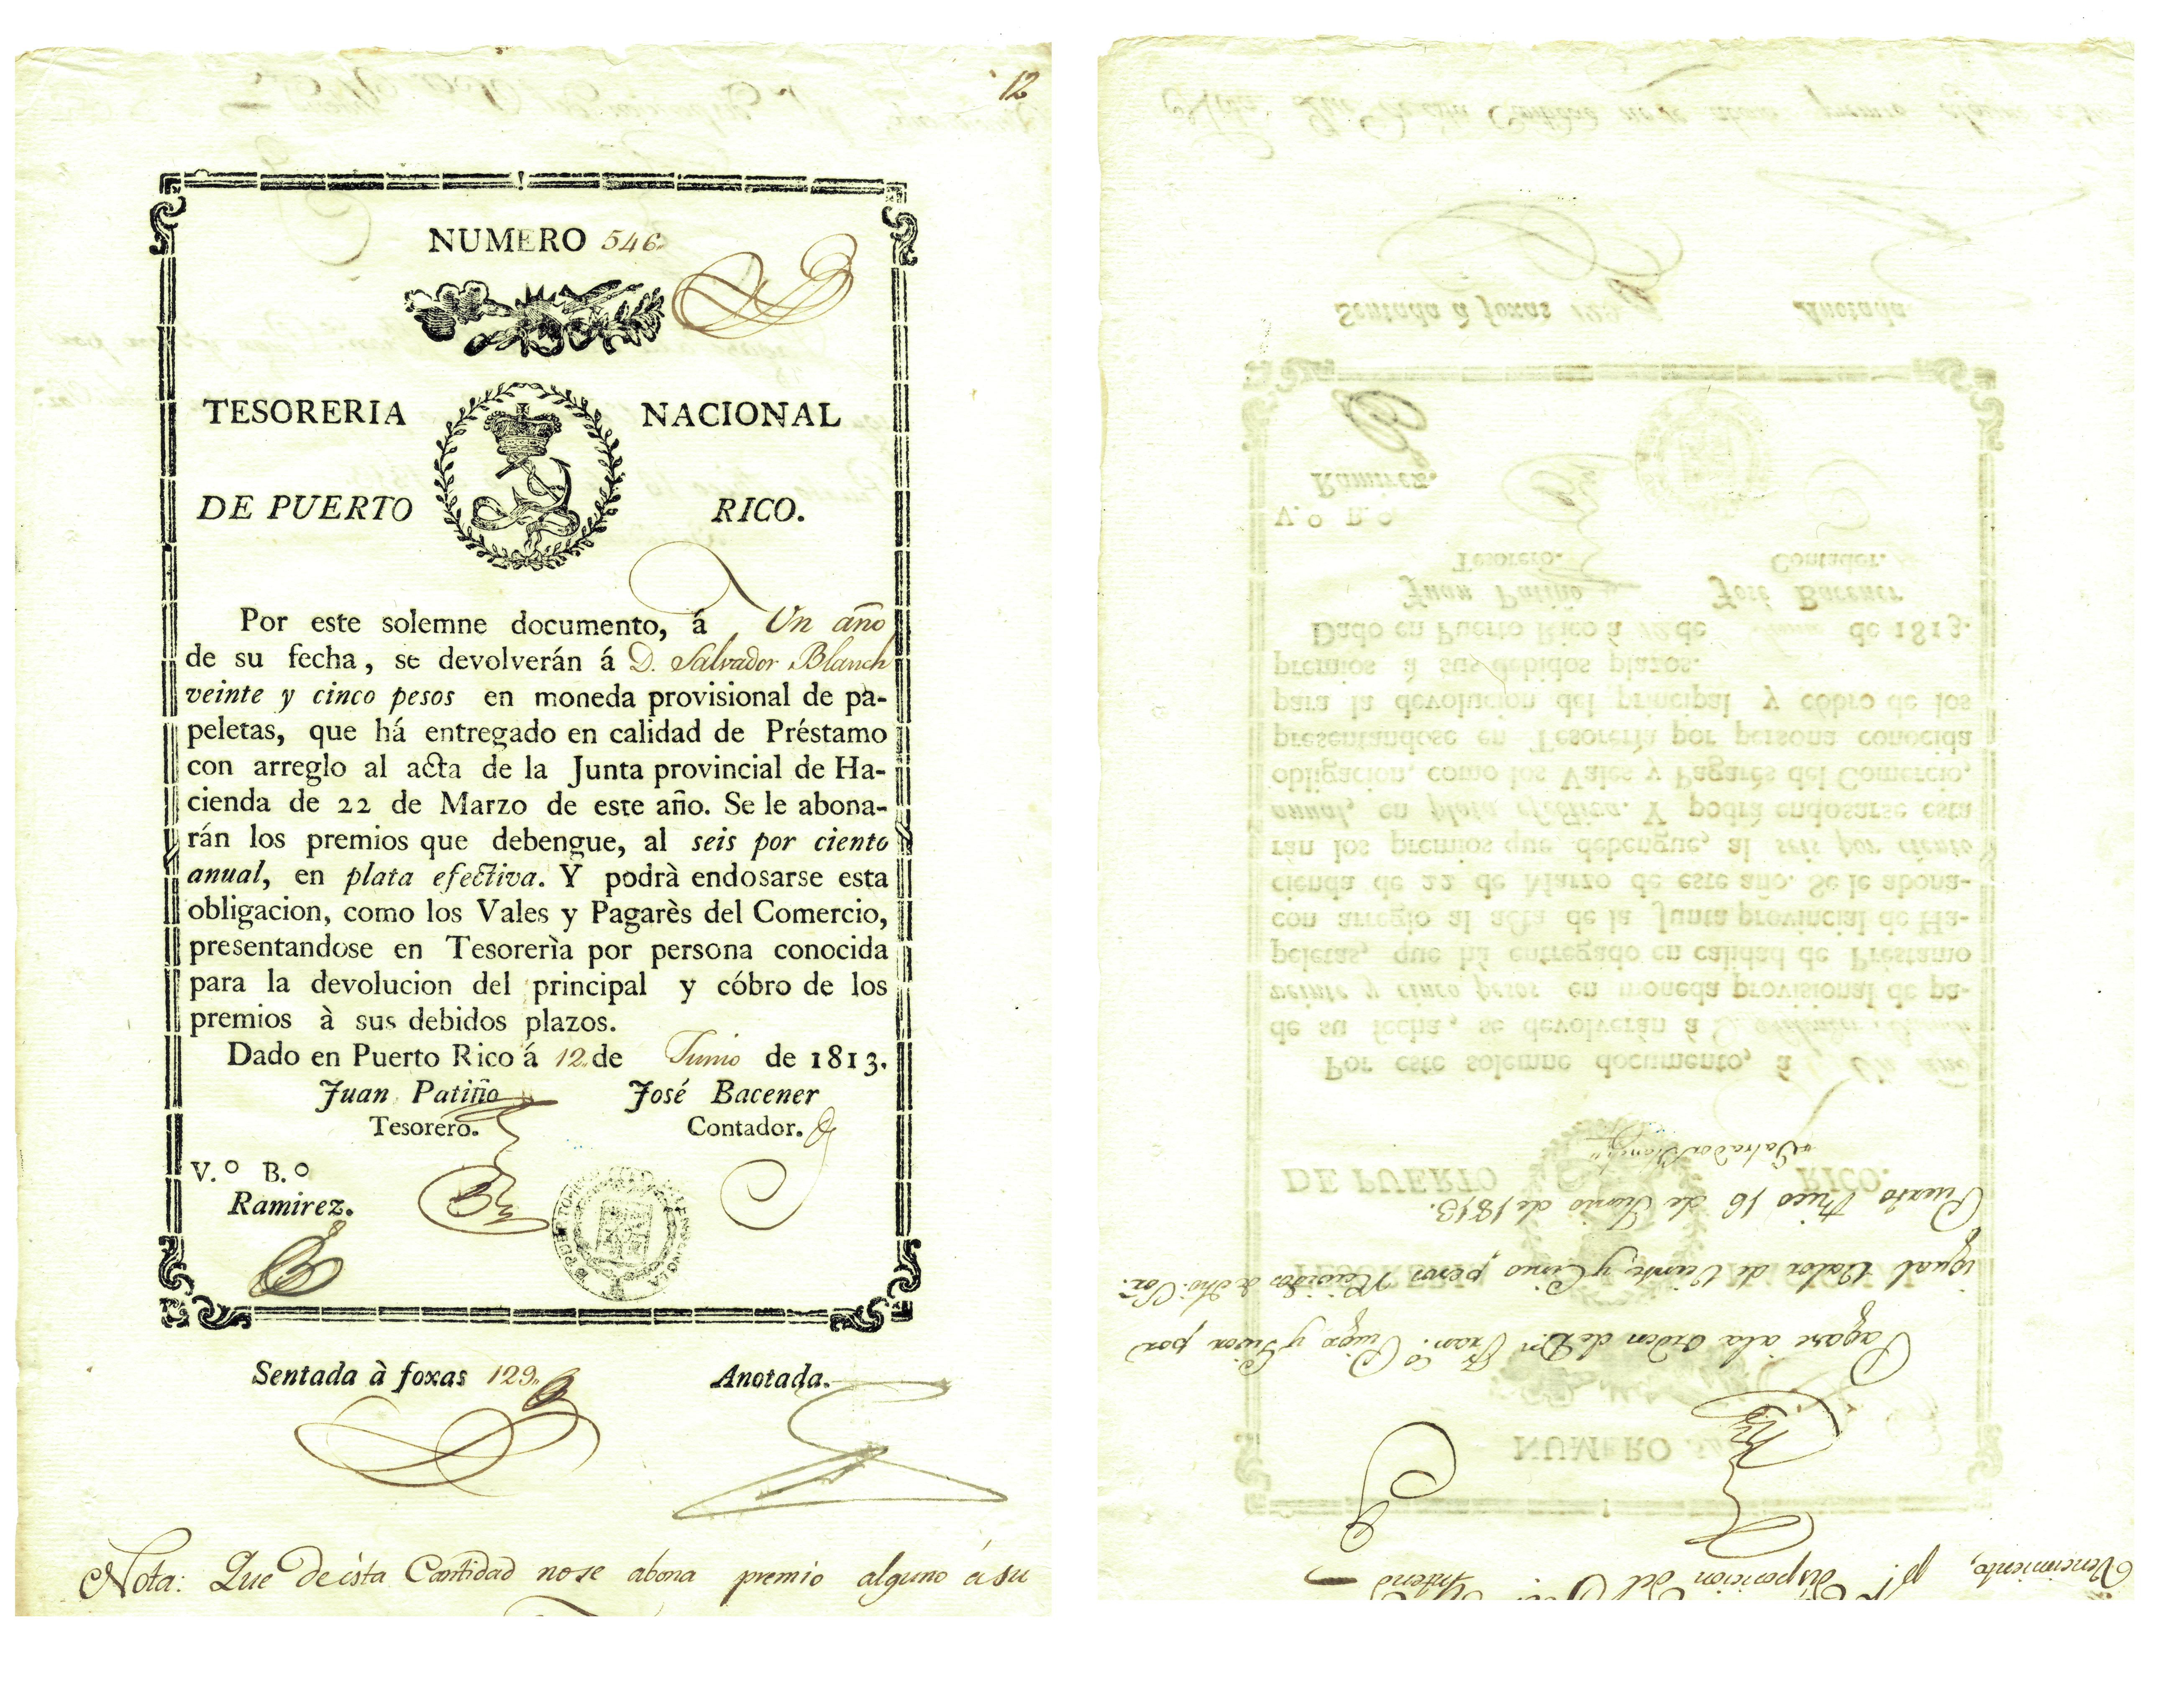 12
NUMERO 546
TESORERIA NACIONAL
DE PUERTO RICO.
Por este solemne documento, á Un año
de su fecha, se devolverán á D. Salvador Blanch
veinte y cinco pesos en moneda provisional de pa-
peletas, que há entregado en calidad de Préstamo
con arreglo al acta de la Junta provincial de Ha-
cienda de 22 de Marzo de este año. Se le abona-
rán los premios que debengue, al seis por ciento
anual, en plata efectiva. Y podrà endosarse esta
obligacion, como los Vales y Pagarès del Comercio,
presentandose en Tesorerìa por persona conocida
para la devolucion del principal y cóbro de los
premios à sus debidos plazos.
Dado en Puerto Rico á 12 de Junio de 1813.
Juan Patiño José Bacener
Tesorero. Contador.
V.º B.º
Ramirez.
Sentada à foxas 129. Anotada.
Nota: Que de ésta Cantidad no se abona premio alguno á su
Vencimiento, pr. disposicion del
Pagare ala orden de Dn. Franco. Puga y por
igual Valor de Veinte y Cinco pesos Recividos de dho. Sor.
Puerto Rico 16 de Junio de 1813.
Salvador Blanch